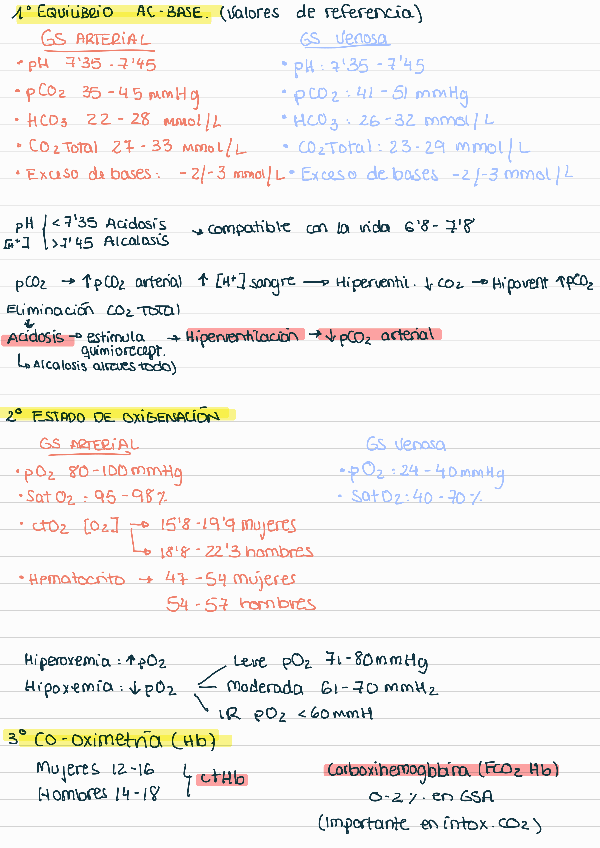 1º EQUILIBRIO AC-BASE. (Valores de referencia)
GS ARTERIAL
GS Venosa
• pH 7'35 - 7'45
• pH: 7'35 - 7'45
• pCO2 35 - 45 mmHg
• pCO2: 41 - 51 mmHg
• HCO3 22 - 28 mmol/L
• HCO3: 26-32 mmol/L
• CO2 Total 27 - 33 mmol/L
• CO2 Total: 23-29 mmol/L
• Exceso de bases: -2/-3 mmol/L
• Exceso de bases -2/-3 mmol/L
pH < 7'35 Acidosis → compatible con la vida 6'8 - 7'8
[H+] > 7'45 Alcalosis
pCO2 → ↑pCO2 arterial ↑ [H+] sangre → Hiperventil. ↓ CO2 → Hipovent ↑PCO2
Eliminación CO2 TOTAL
Acidosis → estimula quimiorecept. → Hiperventilación → ↓ pCO2 arterial
↳ Alcalosis alreves todo)
2º ESTADO DE OXIGENACIÓN
GS ARTERIAL
GS Venosa
• pO2 80-100 mmHg
• pO2: 24 - 40 mmHg
• Sat O2: 95 - 98%
• Sat O2: 40 - 70%
• ctO2 [O2] → 15'8 - 19'9 Mujeres
↳ 18'8 - 22'3 hombres
• Hematocrito → 47 - 54 mujeres
54 - 57 hombres
Hiperoxemia: ↑pO2
Leve pO2 71-80 mmHg
Hipoxemia: ↓pO2
Moderada 61-70 mmHz
IR pO2 < 60 mmH
3º CO-OXIMETRÍA (Hb)
Mujeres 12-16
Hombres 14-18
ctHb
Carboxihemoglobina (FCO2 Hb)
0-2% en GSA
(Importante en intox. CO2)